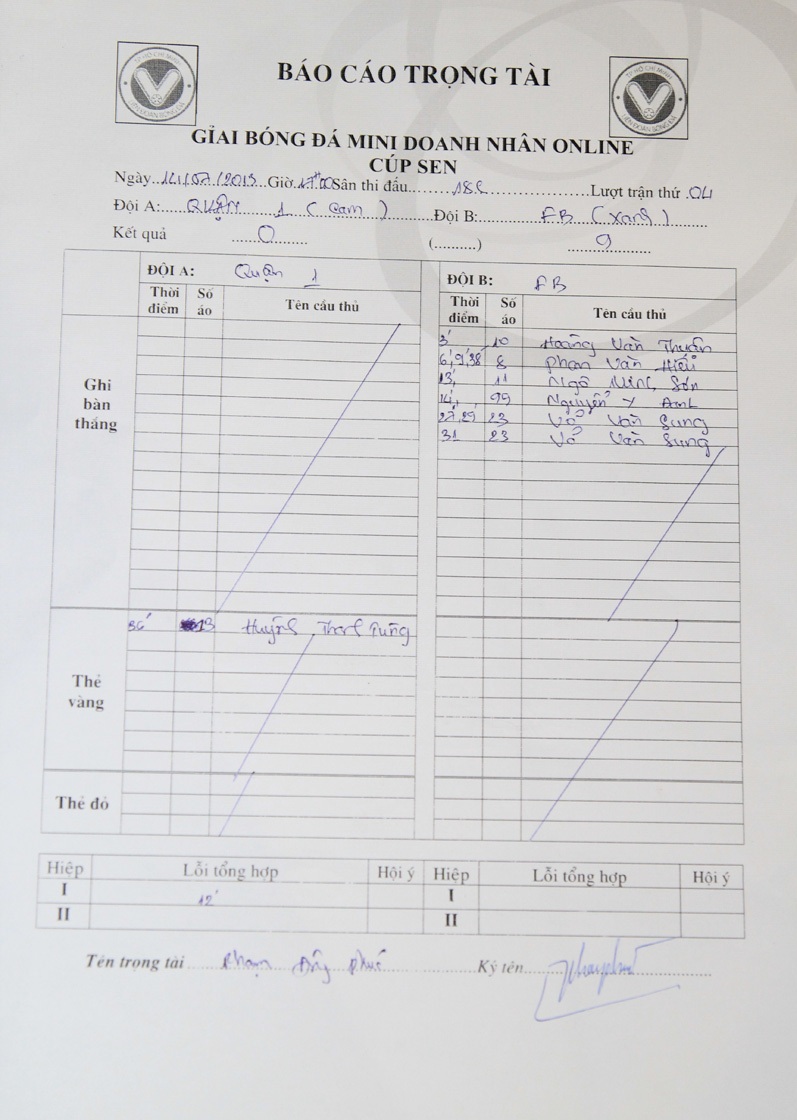 BÁO CÁO TRỌNG TÀI
TP HỒ CHÍ MINH
LIÊN ĐOÀN BÓNG ĐÁ
TP HỒ CHÍ MINH
LIÊN ĐOÀN BÓNG ĐÁ
GIẢI BÓNG ĐÁ MINI DOANH NHÂN ONLINE
CÚP SEN
Ngày 14/07/2013 Giờ 17h00 Sân thi đấu Lượt trận thứ 04
Đội A: QUẬN 1 (Cam) Đội B: FB (Xanh)
Kết quả 0 (..........) 9
ĐỘI A: Quận 1 ĐỘI B: FB
Thời điểm Số áo Tên cầu thủ Thời điểm Số áo Tên cầu thủ
Ghi bàn thắng
3' 10 Hoàng Văn Thuấn
6', 9', 38' 8 Phan Văn Hiếu
13' 11 Ngô Minh Sơn
14' 99 Nguyễn Y Anh
23 Võ Văn Sung
31 23 Võ Văn Sung
Thẻ vàng
36' 13 Huỳnh Thanh Tùng
Thẻ đỏ
Hiệp Lỗi tổng hợp Hội ý Hiệp Lỗi tổng hợp Hội ý
I 12' I
II II
Tên trọng tài Phạm Phú Ký tên